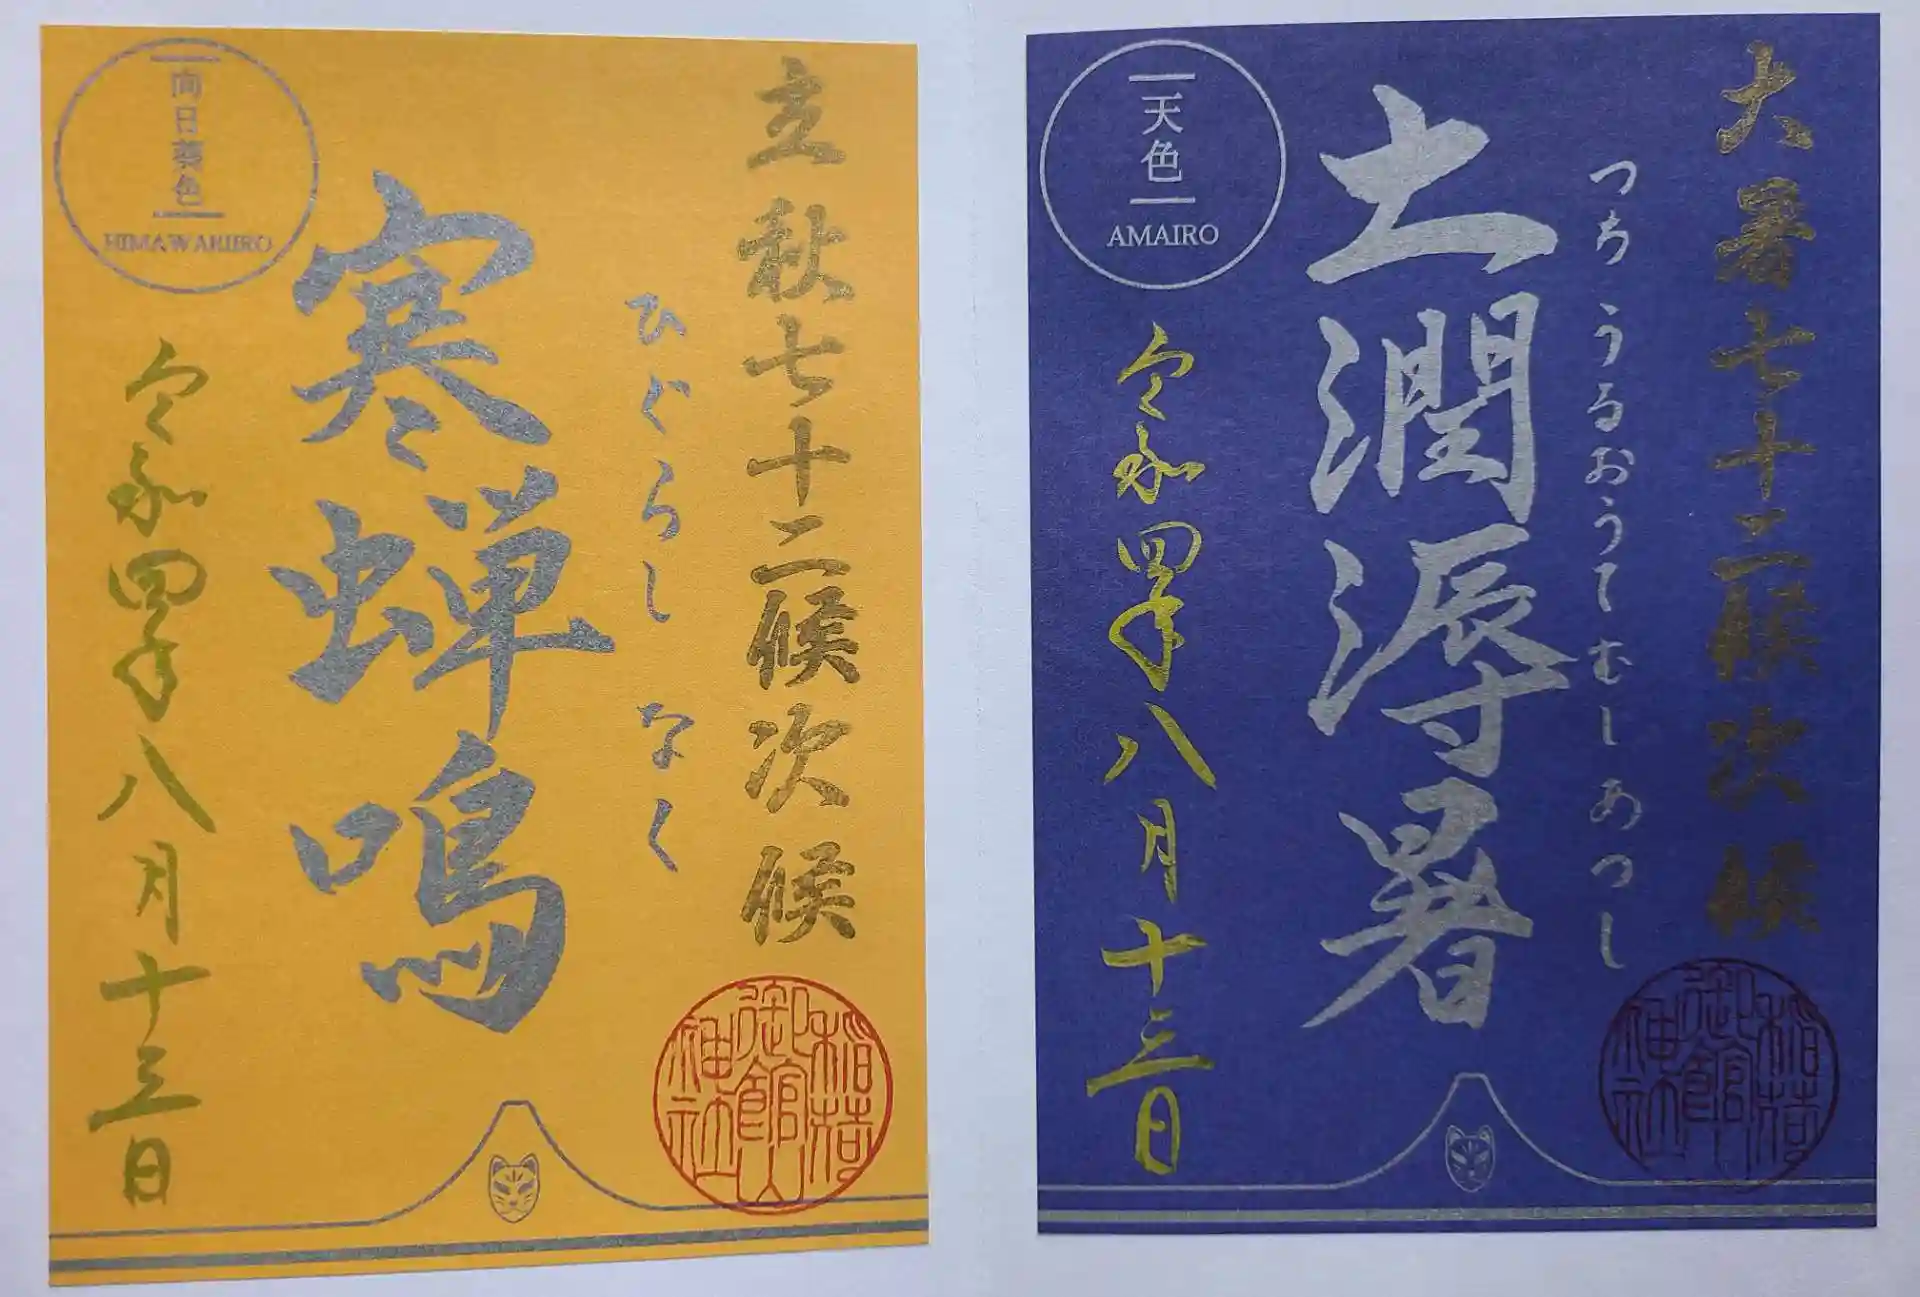 向日葵色
HIMAWARIIRO
立秋七十二候次候
ひぐらし なく
寒蝉鳴
令和四年八月十三日
稲荷
御館山
神社
天色
AMAIRO
大暑七十二候次候
つち うるおうてむしあつし
土潤溽暑
令和四年八月十三日
稲荷
御館山
神社